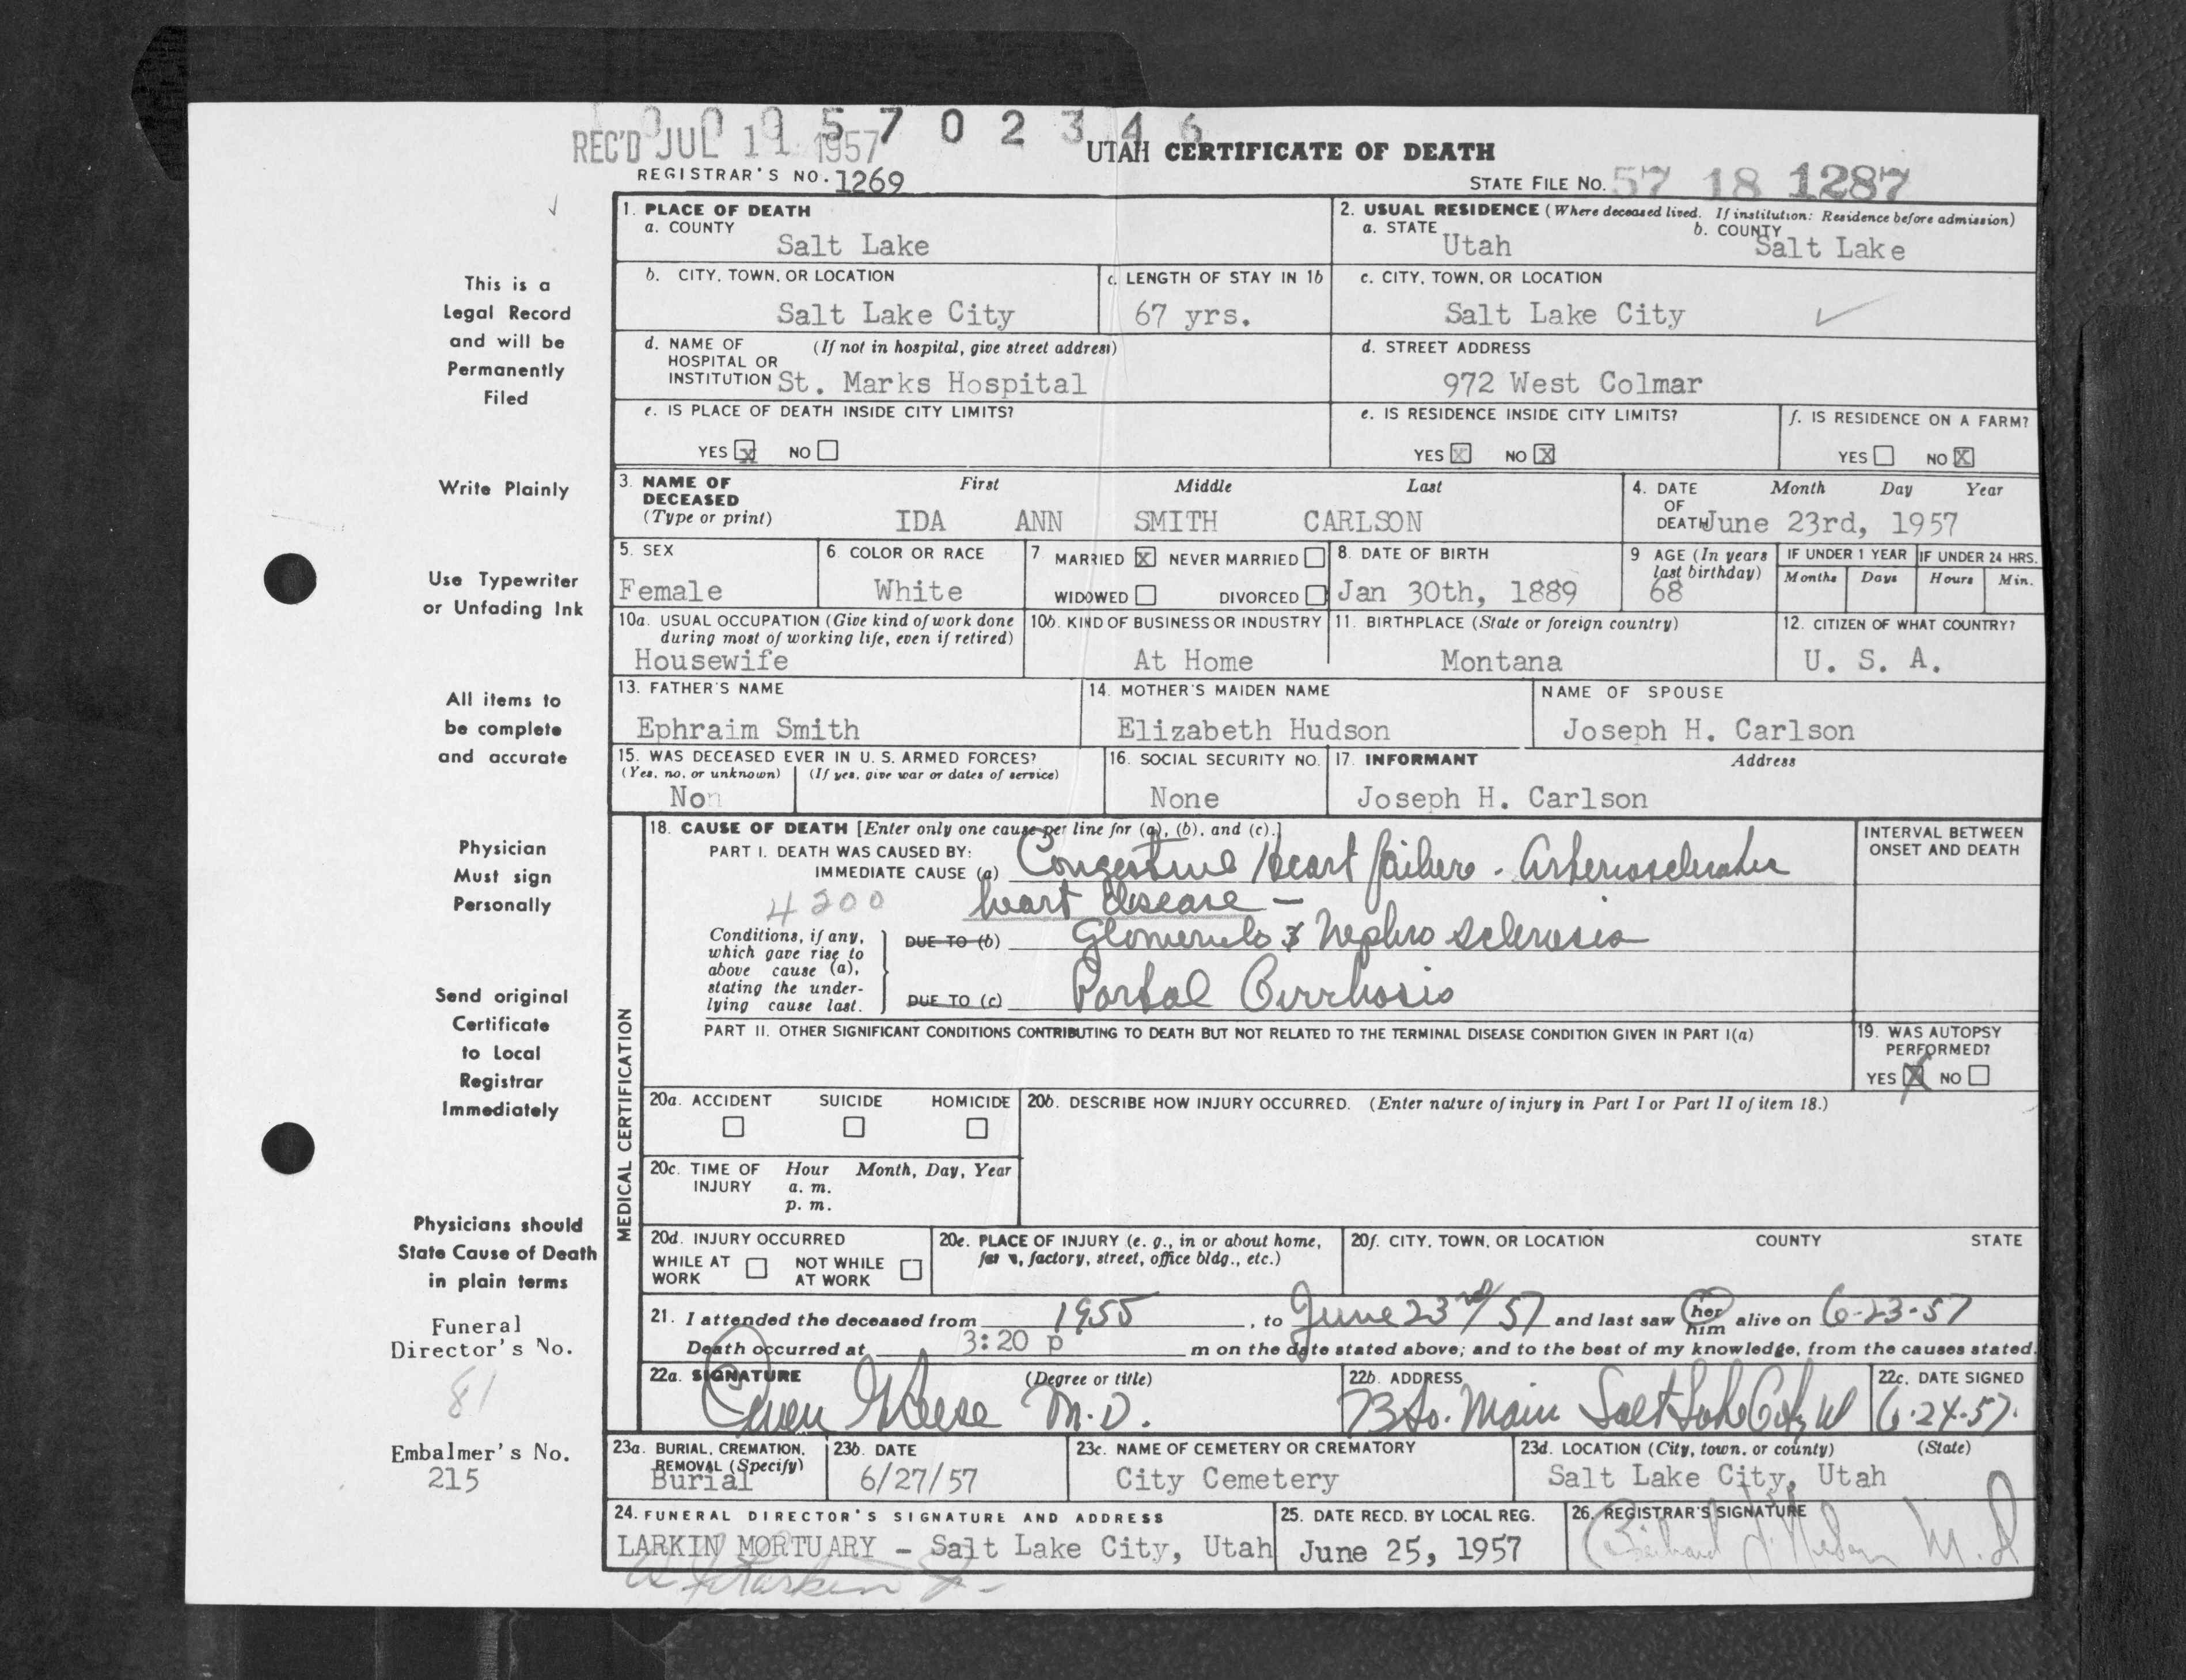 0 0 9 5 7 0 2 3 4 6
REC'D JUL 11 1957
UTAH CERTIFICATE OF DEATH
REGISTRAR'S NO. 1269
STATE FILE NO. 57 18 1287
1. PLACE OF DEATH
a. COUNTY
Salt Lake
2. USUAL RESIDENCE (Where deceased lived. If institution: Residence before admission)
a. STATE
Utah
b. COUNTY
Salt Lake
b. CITY, TOWN, OR LOCATION
Salt Lake City
c. LENGTH OF STAY IN 1b
67 yrs.
c. CITY, TOWN, OR LOCATION
Salt Lake City
d. NAME OF (If not in hospital, give street address)
HOSPITAL OR
INSTITUTION St. Marks Hospital
d. STREET ADDRESS
972 West Colmar
e. IS PLACE OF DEATH INSIDE CITY LIMITS?
YES X NO
e. IS RESIDENCE INSIDE CITY LIMITS?
YES X NO X
f. IS RESIDENCE ON A FARM?
YES NO X
3. NAME OF DECEASED
(Type or print)
First Middle Last
IDA ANN SMITH CARLSON
4. DATE OF DEATH
Month Day Year
June 23rd, 1957
5. SEX
Female
6. COLOR OR RACE
White
7. MARRIED X NEVER MARRIED
WIDOWED DIVORCED
8. DATE OF BIRTH
Jan 30th, 1889
9 AGE (In years last birthday)
68
IF UNDER 1 YEAR
Months Days
IF UNDER 24 HRS.
Hours Min.
10a. USUAL OCCUPATION (Give kind of work done
during most of working life, even if retired)
Housewife
10b. KIND OF BUSINESS OR INDUSTRY
At Home
11. BIRTHPLACE (State or foreign country)
Montana
12. CITIZEN OF WHAT COUNTRY?
U. S. A.
13. FATHER'S NAME
Ephraim Smith
14. MOTHER'S MAIDEN NAME
Elizabeth Hudson
NAME OF SPOUSE
Joseph H. Carlson
15. WAS DECEASED EVER IN U. S. ARMED FORCES?
(Yes, no, or unknown) (If yes, give war or dates of service)
Non
16. SOCIAL SECURITY NO.
None
17. INFORMANT Address
Joseph H. Carlson
MEDICAL CERTIFICATION
18. CAUSE OF DEATH [Enter only one cause per line for (a), (b), and (c).]
INTERVAL BETWEEN
ONSET AND DEATH
PART I. DEATH WAS CAUSED BY:
IMMEDIATE CAUSE (a) Congestive Heart failure - Arteriosclerotic
4200 heart disease -
Conditions, if any,
which gave rise to
above cause (a),
stating the under-
lying cause last.
DUE TO (b) Glomerulo & Nephro sclerosis
DUE TO (c) Portal Cirrhosis
PART II. OTHER SIGNIFICANT CONDITIONS CONTRIBUTING TO DEATH BUT NOT RELATED TO THE TERMINAL DISEASE CONDITION GIVEN IN PART I(a)
19. WAS AUTOPSY
PERFORMED?
YES X NO
20a. ACCIDENT SUICIDE HOMICIDE
20b. DESCRIBE HOW INJURY OCCURRED. (Enter nature of injury in Part I or Part II of item 18.)
20c. TIME OF INJURY
Hour Month, Day, Year
a. m.
p. m.
20d. INJURY OCCURRED
WHILE AT WORK
NOT WHILE AT WORK
20e. PLACE OF INJURY (e. g., in or about home,
farm, factory, street, office bldg., etc.)
20f. CITY, TOWN, OR LOCATION COUNTY STATE
21. I attended the deceased from 1955, to June 23rd/57 and last saw her him alive on 6-23-57
Death occurred at 3:20 p m on the date stated above; and to the best of my knowledge, from the causes stated.
22a. SIGNATURE (Degree or title)
Owen G Reese M.D.
22b. ADDRESS
73 So. Main Salt Lake City Ut
22c. DATE SIGNED
6-24-57.
23a. BURIAL, CREMATION,
REMOVAL (Specify)
Burial
23b. DATE
6/27/57
23c. NAME OF CEMETERY OR CREMATORY
City Cemetery
23d. LOCATION (City, town, or county) (State)
Salt Lake City, Utah
24. FUNERAL DIRECTOR'S SIGNATURE AND ADDRESS
LARKIN MORTUARY - Salt Lake City, Utah
25. DATE RECD. BY LOCAL REG.
June 25, 1957
26. REGISTRAR'S SIGNATURE
M.D
This is a
Legal Record
and will be
Permanently
Filed
Write Plainly
Use Typewriter
or Unfading Ink
All items to
be complete
and accurate
Physician
Must sign
Personally
Send original
Certificate
to Local
Registrar
Immediately
Physicians should
State Cause of Death
in plain terms
Funeral
Director's No.
81
Embalmer's No.
215